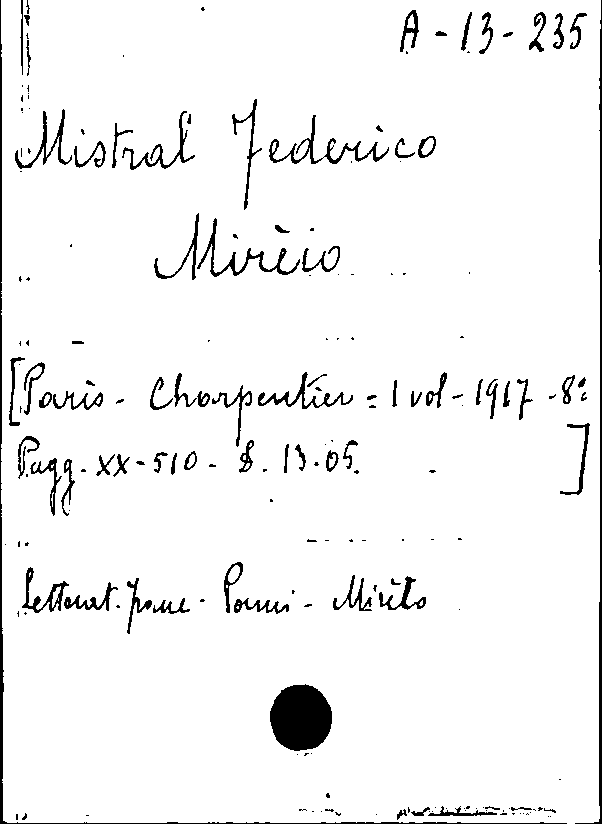 A - 13 - 235
Mistral Federico
Mirèio
[Paris - Charpentier = 1 vol - 1917 - 8º
Pagg. XX - 510 - S. 13.05. ]
Letterat. franc. - Poemi - Mirèio